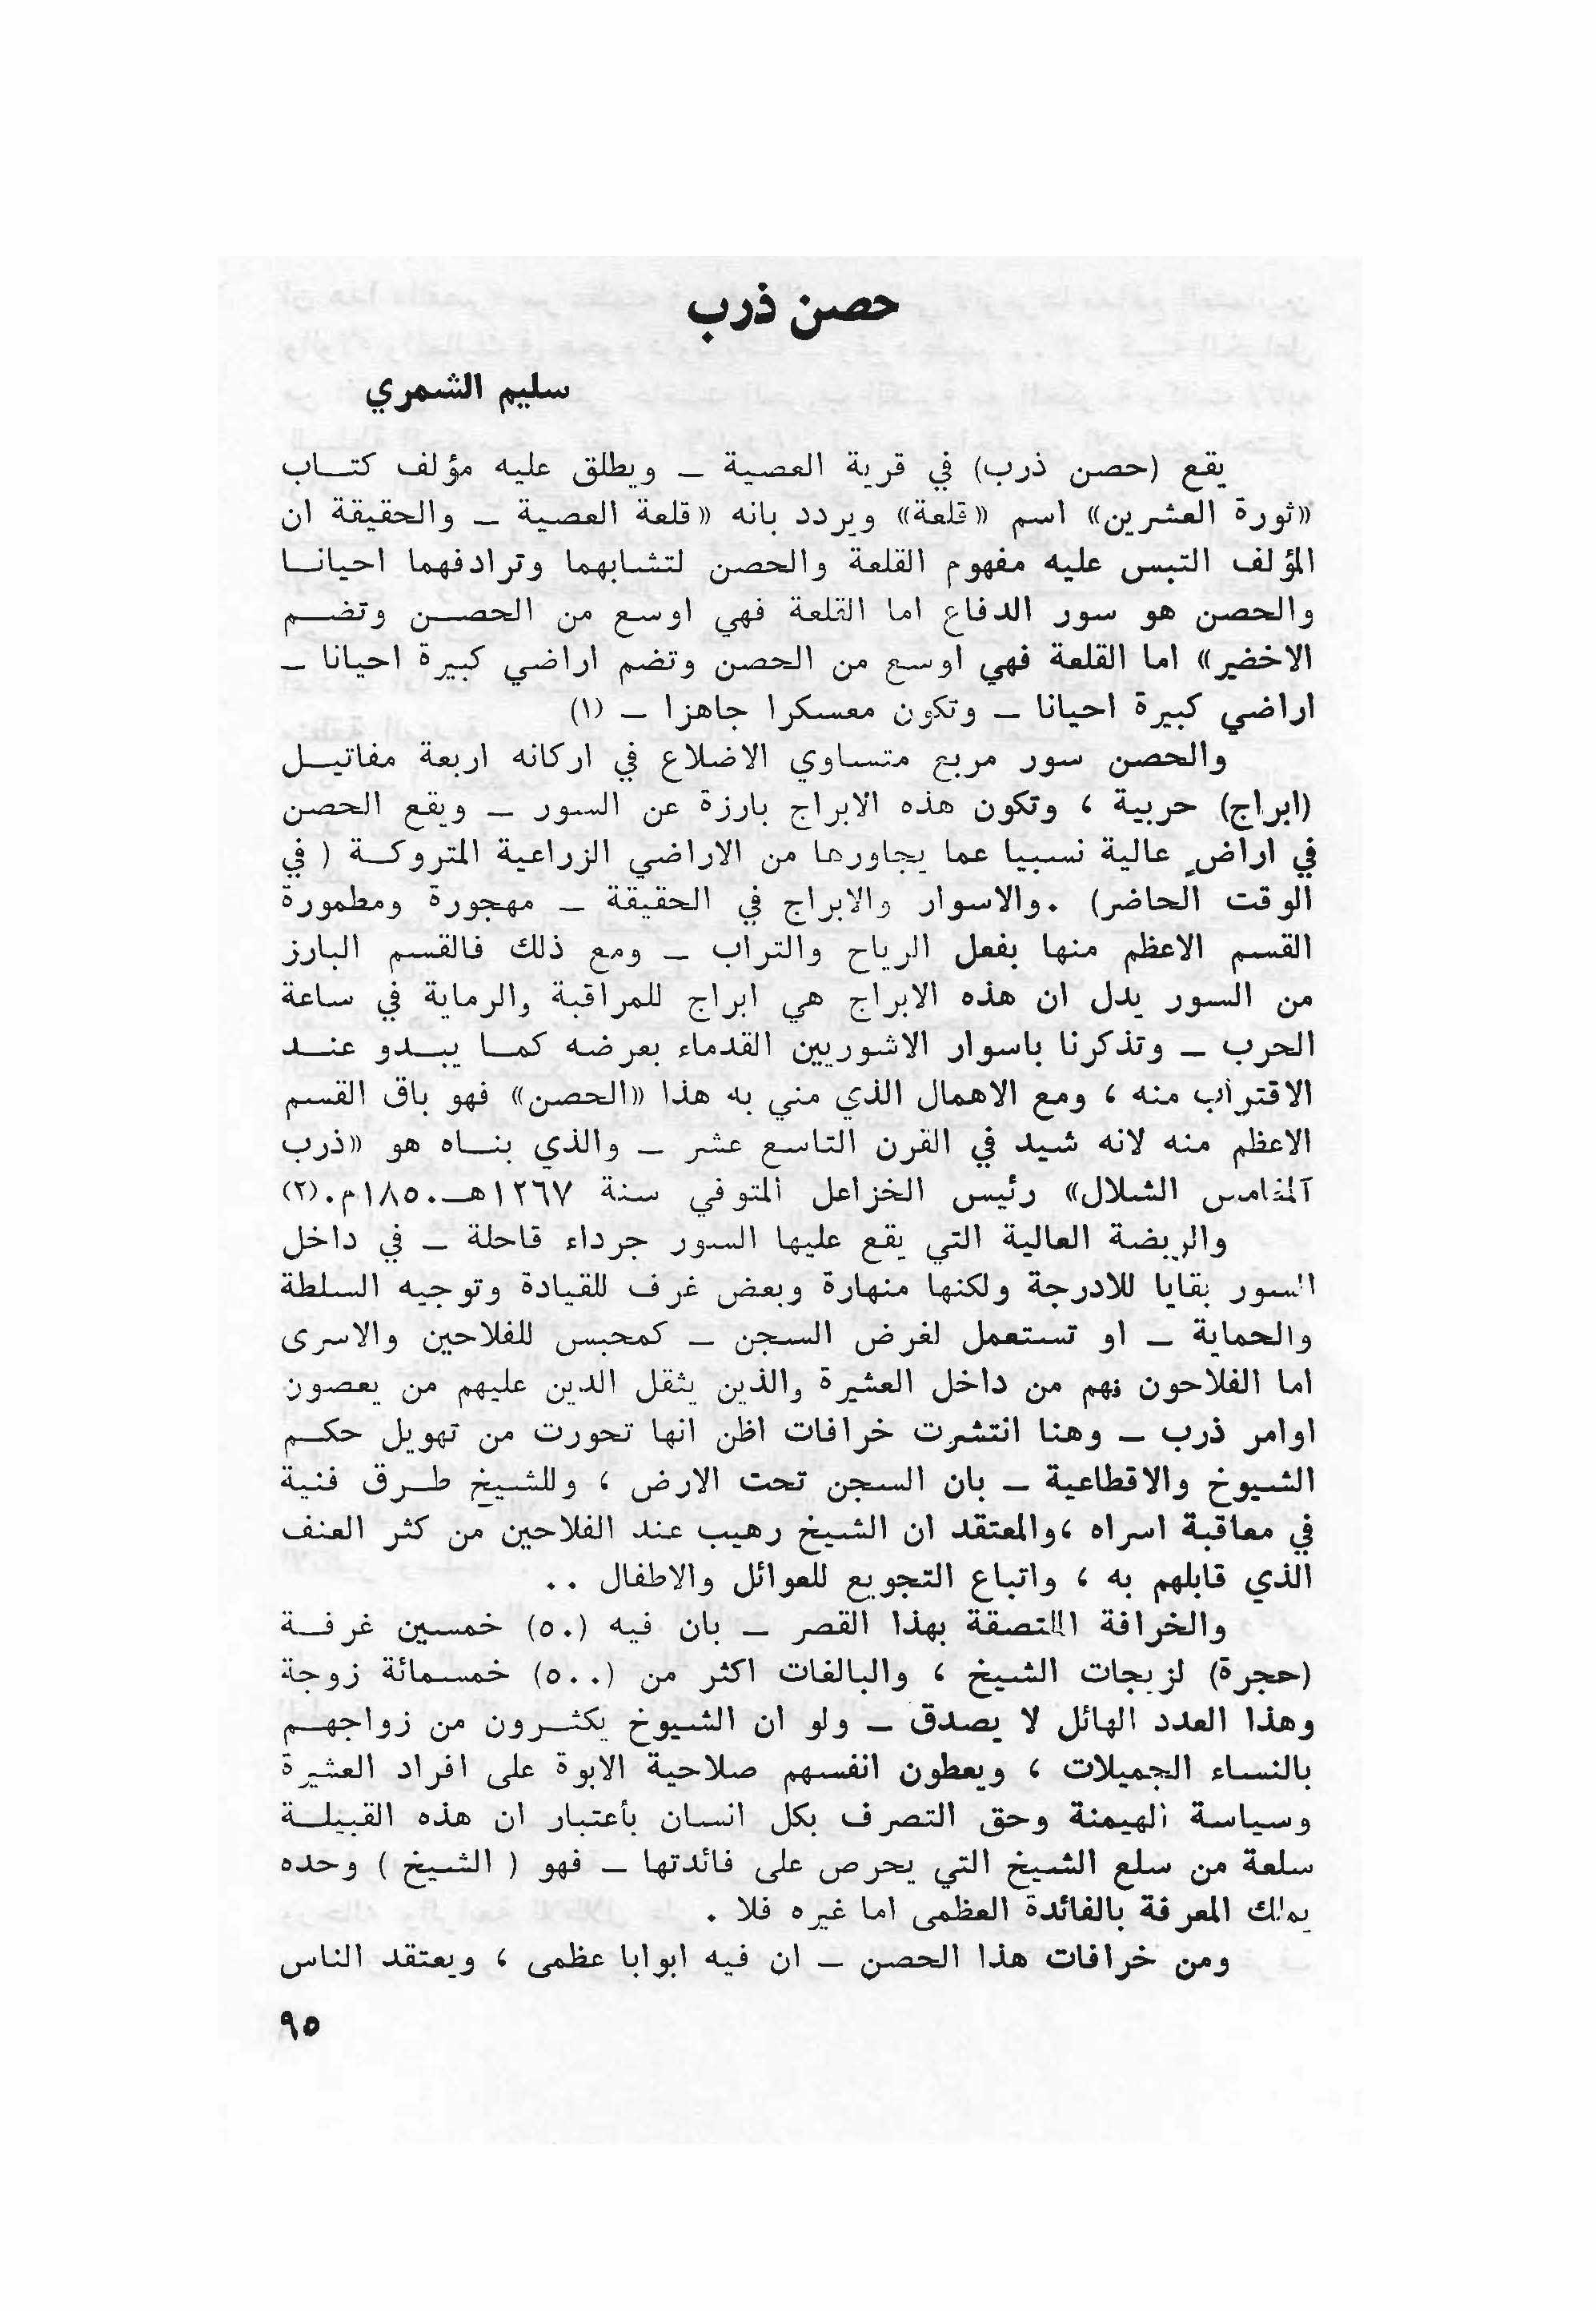 حصن ذرب
سليم الشمري
يقع (حصن ذرب) في قرية العصية ــ ويطلق عليه مؤلف كتــاب
«ثورة العشرين» اسم «قلعة» ويردد بانه «قلعة العصية ــ والحقيقة ان
المؤلف التبس عليه مفهوم القلعة والحصن لتشابهما وترادفهما احيانــا
والحصن هو سور الدفاع اما القلعة فهي اوسع من الحصــن وتضــم
الاخضير» اما القلعة فهي اوسع من الحصن وتضم اراضي كبيرة احيانا ــ
اراضي كبيرة احيانا ــ وتكون معسكرا جاهزا ــ (١)
والحصن سور مربع متساوي الاضلاع في اركانه اربعة مفاتيــل
(ابراج) حربية ، وتكون هذه الابراج بارزة عن السور ــ ويقع الحصن
في اراضٍ عالية نسبيا عما يجاورها من الاراضي الزراعية المتروكــة ( في
الوقت الحاضر) .والاسوار والابراج في الحقيقة ــ مهجورة ومطمورة
القسم الاعظم منها بفعل الرياح والتراب ــ ومع ذلك فالقسم البارز
من السور يدل ان هذه الابراج هي ابراج للمراقبة والرماية في ساعة
الحرب ــ وتذكرنا باسوار الاشوريين القدماء بعرضه كمــا يبــدو عنــد
الاقتراب منه ، ومع الاهمال الذي مني به هذا «الحصن» فهو باق القسم
الاعظم منه لانه شيد في القرن التاسع عشر ــ والذي بنــاه هو «ذرب
المغامس الشلال» رئيس الخزاعل المتوفي سنة ١٢٦٧هــ١٨٥٠م.(٢)
والربضة العالية التي يقع عليها السور جرداء قاحلة ــ في داخل
السور بقايا للادرجة ولكنها منهارة وبعض غرف للقيادة وتوجيه السلطة
والحماية ــ او تستعمل لغرض السجن ــ كمحبس للفلاحين والاسرى
اما الفلاحون فهم من داخل العشيرة والذين يثقل الدين عليهم من يعصون
اوامر ذرب ــ وهنا انتشرت خرافات اظن انها تحورت من تهويل حكــم
الشيوخ والاقطاعية ــ بان السجن تحت الارض ، وللشيخ طــرق فنية
في معاقبة اسراه ،والمعتقد ان الشيخ رهيب عند الفلاحين من كثر العنف
الذي قابلهم به ، واتباع التجويع للعوائل والاطفال . .
والخرافة الملتصقة بهذا القصر ــ بان فيه (٥٠) خمسين غرفــة
(حجرة) لزيجات الشيخ ، والبالغات اكثر من (٥٠٠) خمسمائة زوجة
وهذا العدد الهائل لا يصدق ــ ولو ان الشيوخ يكثــرون من زواجهــم
بالنساء الجميلات ، ويعطون انفسهم صلاحية الابوة على افراد العشيرة
وسياسة الهيمنة وحق التصرف بكل انسان بأعتبار ان هذه القبيلــة
سلعة من سلع الشيخ التي يحرص على فائدتها ــ فهو ( الشيخ ) وحده
يملك المعرفة بالفائدة العظمى اما غيره فلا .
ومن خرافات هذا الحصن ــ ان فيه ابوابا عظمى ، ويعتقد الناس
٩٥